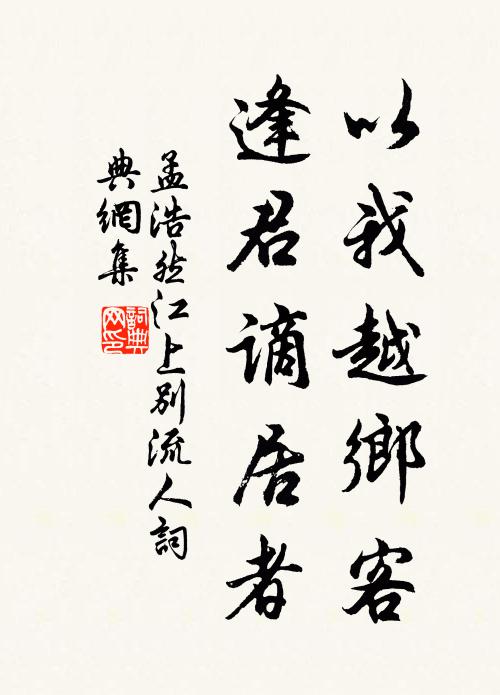 以我越鄉客
逢君謫居者
孟浩然江上别流人詞
典網集
詞典
网印